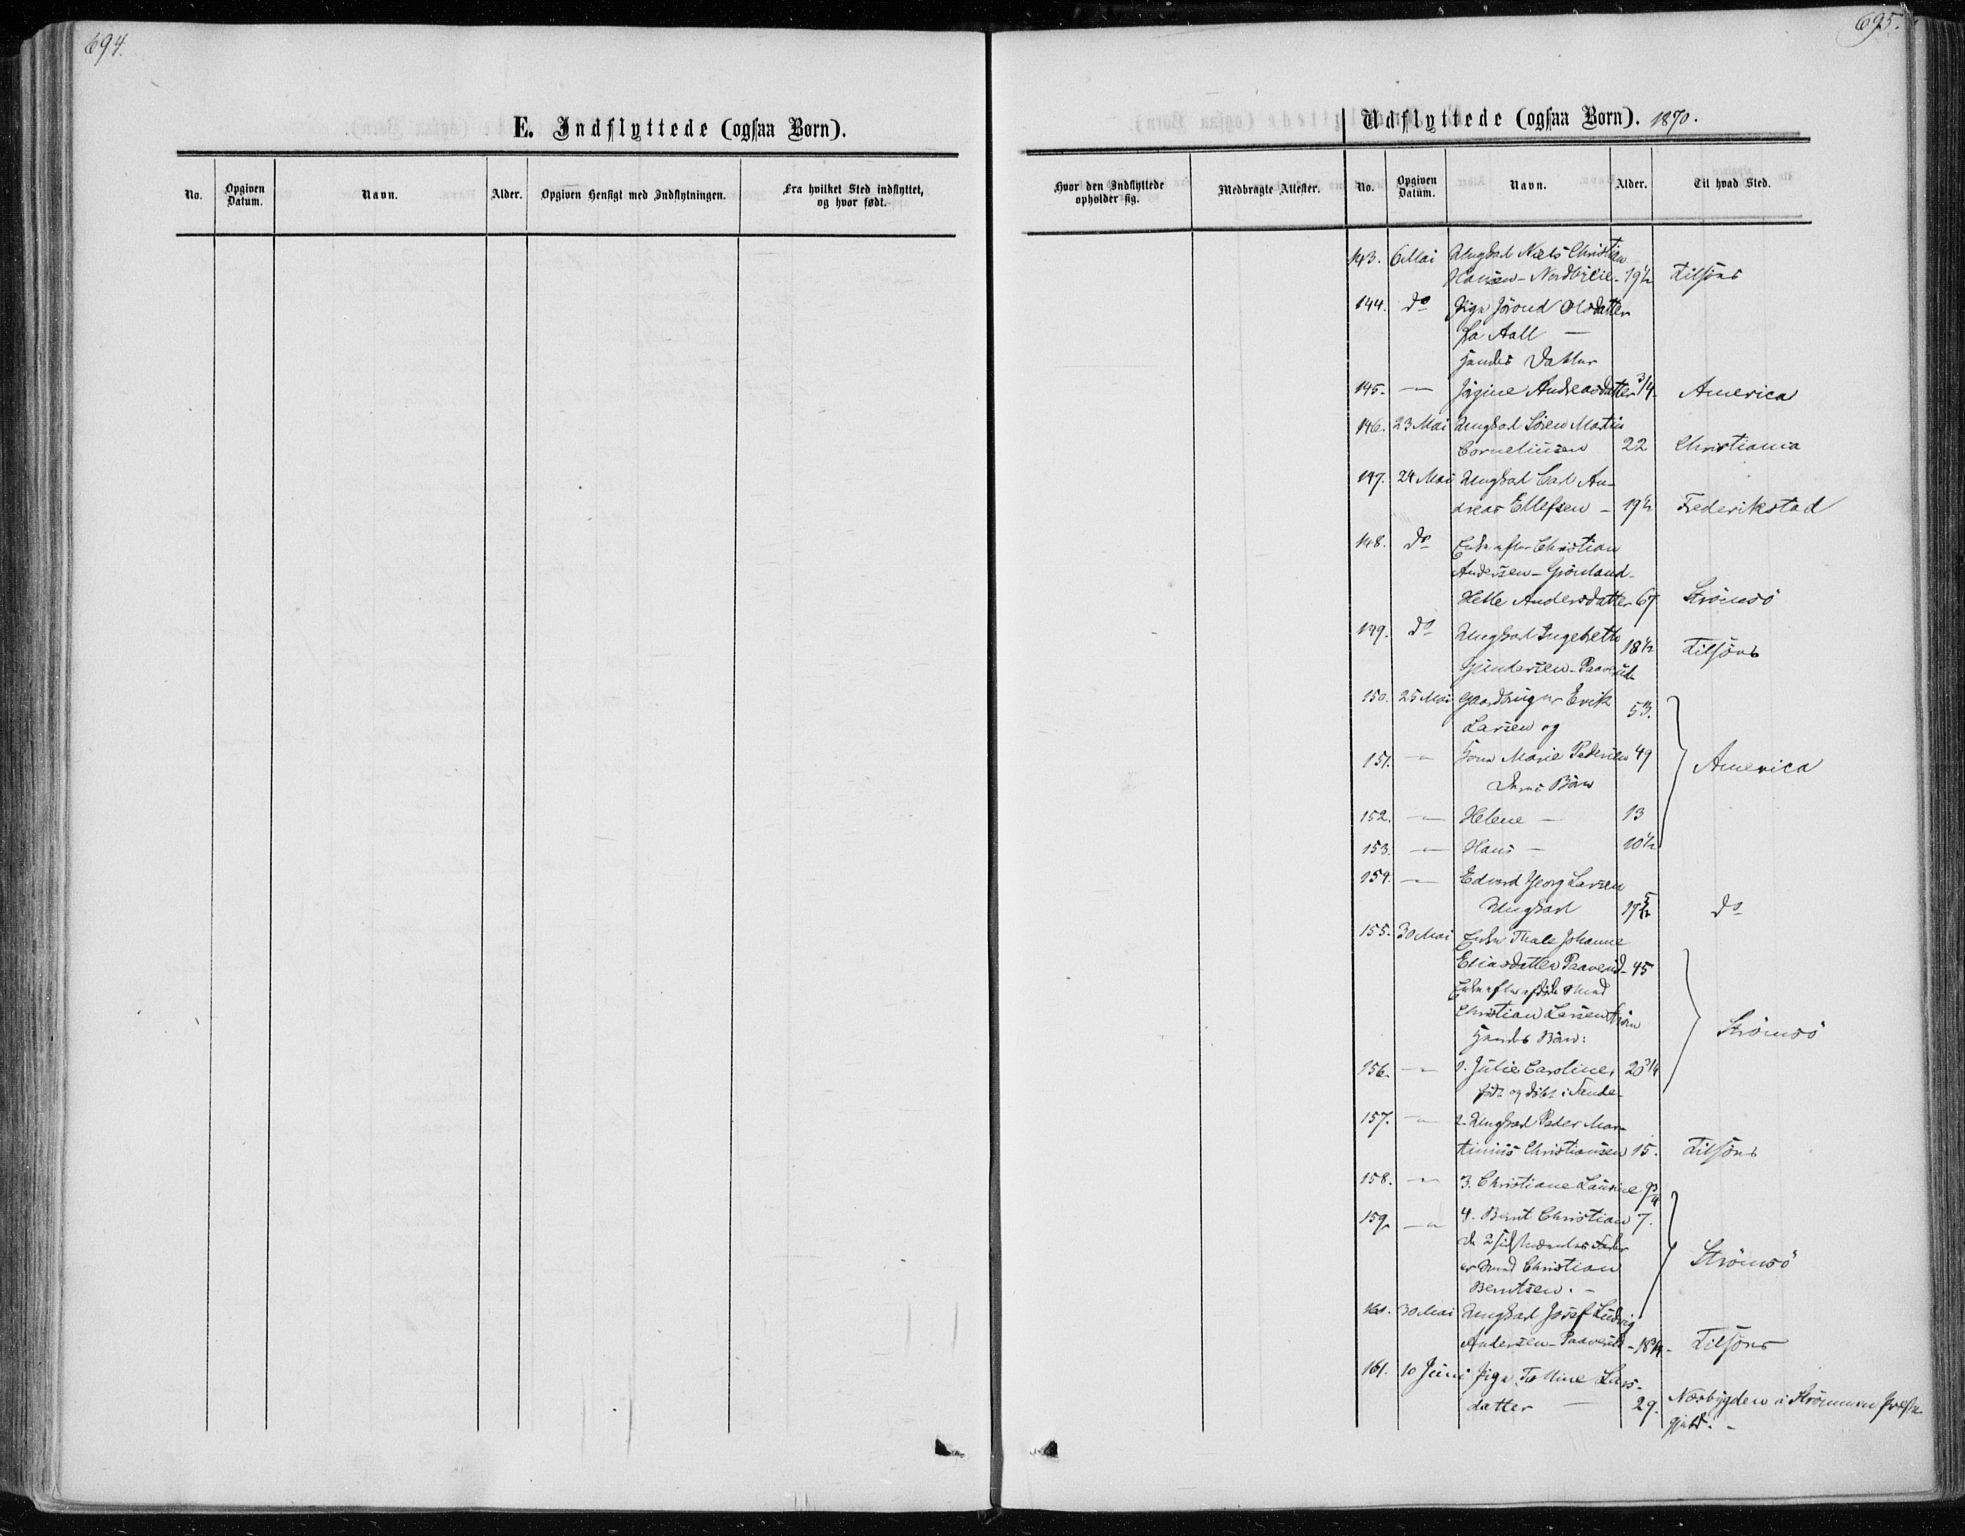 694.
E. Indflyttede (ogsaa Børn).
No.
Opgiven Datum.
Navn.
Alder.
Opgiven Hensigt med Indflytningen.
Fra hvilket Sted indflyttet,
og hvor født.
695.
Udflyttede (ogsaa Børn). 1870.
Hvor den Indflyttede
opholder sig.
Medbragte Attester.
No.
Opgiven Datum.
Navn.
Alder.
Til hvad Sted.
143. 6 Mai Ungkarl Niels Christian
Hansen - Nordbylie - 19½ Tilsøes
144. do Pige Jørond Olsdatter
fra Aall —
hendes Datter
145. — Jørgine Andreasdatter ¾ America
146. 23 Mai Ungkarl Søren Martin
Corneliusen 22 Christiania
147. 24 Mai Ungkarl Carl An-
dreas Ellefsen - 19½ Frederikstad
148. do Enke after Christian
Andersen - Grønland -
Helle Andersdatter 67 Strømsö
149. do Ungkarl Ingebreth
Gundersen - Paaverud 18½ Tilsøes
150. 25 Mai Gaardbruger Erik
Larsen og 53.
151. — Kone Marie Pedersen 49 America
Deres Börn
152. — Helene — 13
153. — Hans — 10½
154. — Edvard Georg Larsen
Ungkarl 19 do
155. 30 Mai Enke Thale Johanne
Eliasdatter Paaverud - 45
Enke after afdöde Mand
Christian Larsen
Hendes Börn: Strömsö
156. — 1. Julie Caroline, 20¾
født og döbt i Sande -
157. — 2. Ungkarl Peder Mar-
tinius Christiansen 15. Tilsøes
158. — 3. Christiane Laurine
159. — 4. Bernt Christian 7.
de 2 sidstnævntes Fader
er Christian Strömsö
Berntsen. -
160. 30 Mai Ungkarl Josef Ludvig
Andersen - Paaverud - 18¾ - Tilsöes
161. 10 Juni Pige Lars-
datter — 29. Næsbygden i Strømmen Præste
gjeld. -